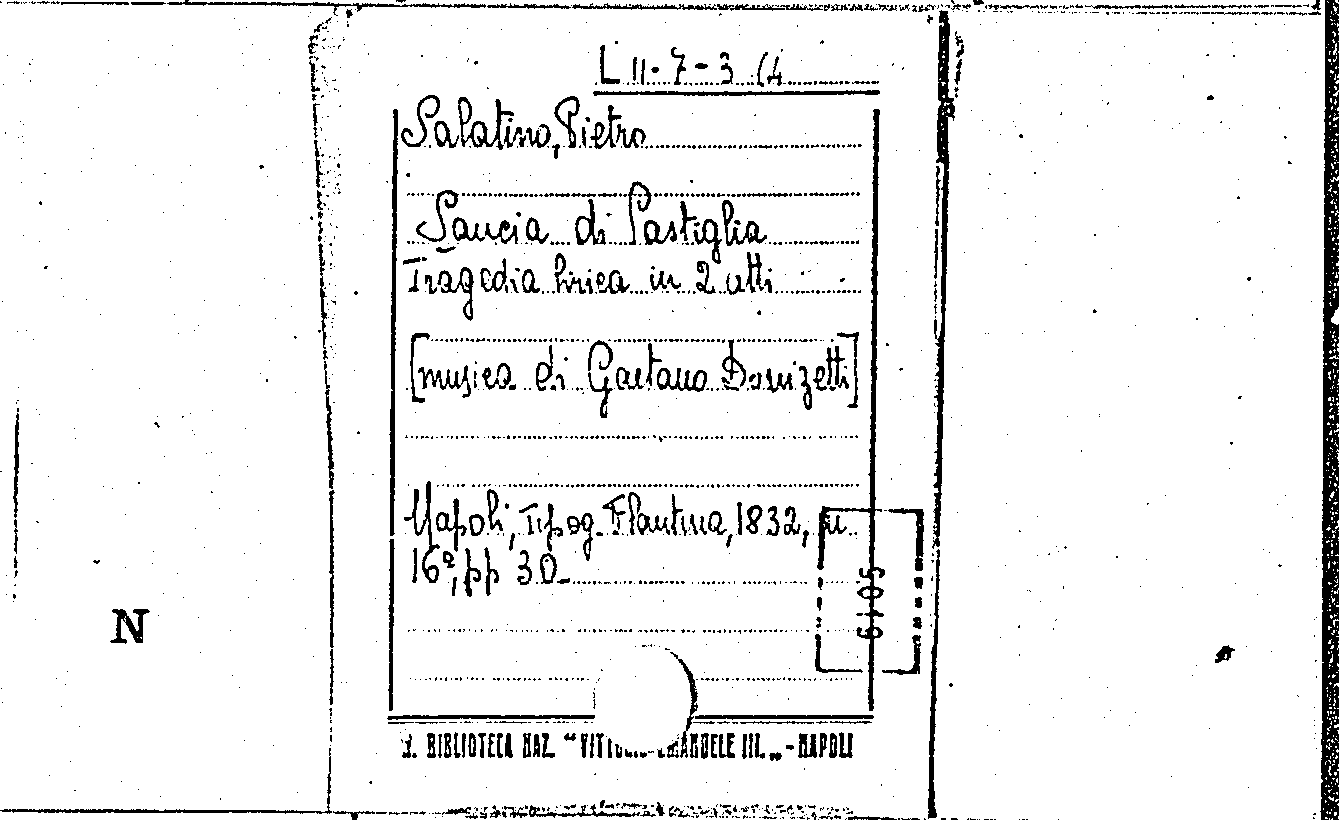 L 11-7-3 (4
Salatino, Pietro
Sancia di Castiglia
Tragedia lirica in 2 atti
[musica di Gaetano Donizetti]
Napoli, Tipog. Flautina, 1832, in
16º, pp 30_
N
R. BIBLIOTECA NAZ. "VITTORIO EMANUELE III." - NAPOLI